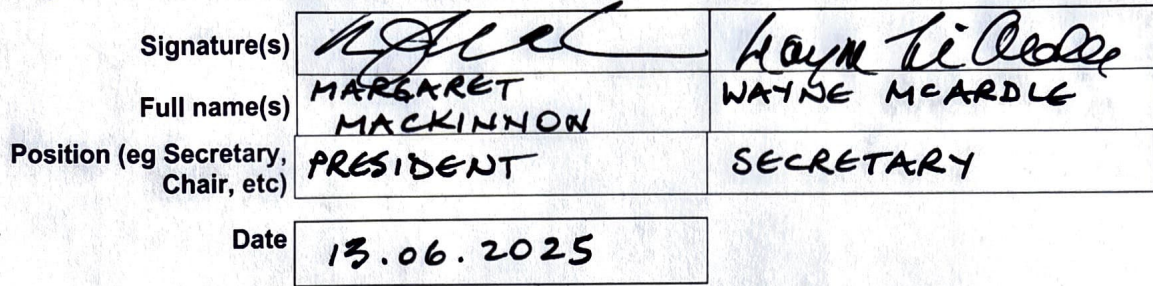 Signature(s)
Full name(s) MARGARET MACKINNON WAYNE MCARDLE
Position (eg Secretary, Chair, etc) PRESIDENT SECRETARY
Date 13.06.2025